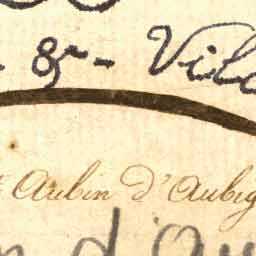 - & - Vil
t Aubin d'Aubig
n d'Au